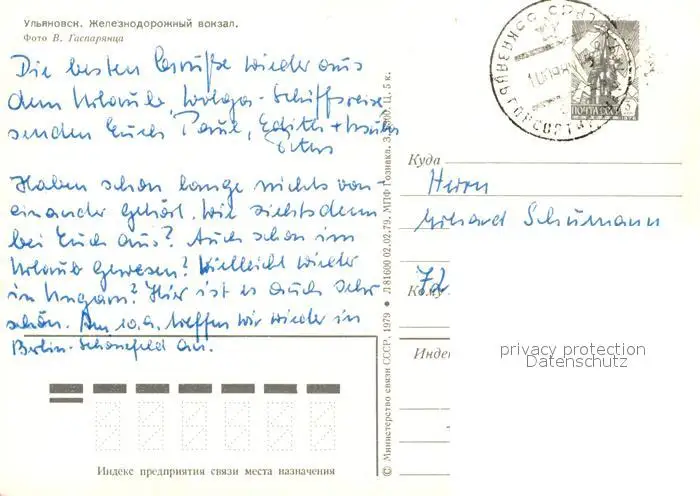 Ульяновск. Железнодорожный вокзал.
Фото В. Гаспарянца
Die besten Grüße wieder aus
dem Urlaub, Wolga-Schiffsreise
senden Euch Paul, Edith +
Haben schon lange nichts von-
einander gehört. Wie siehts denn
bei Euch aus? Auch schon im
Urlaub gewesen? Vielleicht wieder
in Ungarn? Hier ist es auch sehr
schön. Am 10.9. treffen wir wieder in
Berlin-Schönefeld an.
Индекс предприятия связи места назначения
© Министерство связи СССР, 1979 ● Л 81600 02.02.79. МПФ Гознака. З. Ц. 5 к.
ПОЧТА СССР
Куда
Herrn
Erhard Schumann
72
Кому
Индекс
privacy protection
Datenschutz